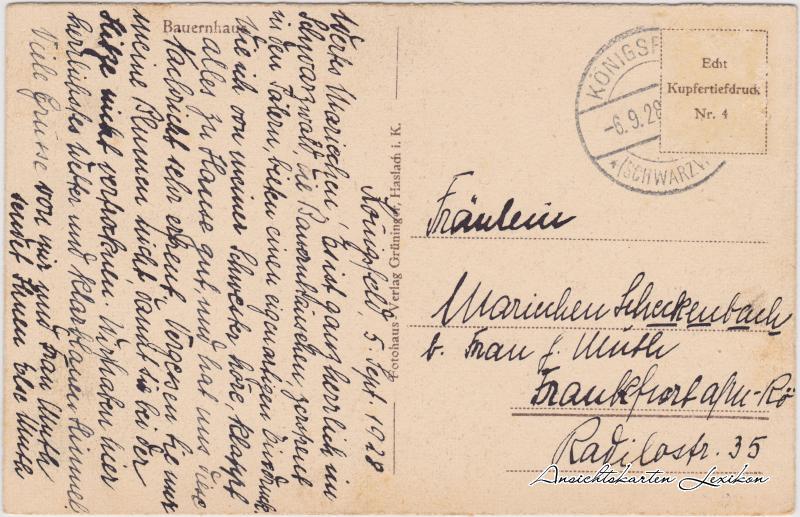 Bauernhaus
Königsfeld, 5. Sept. 1928
Wertes Mariechen, Es ist ganz herrlich im
Schwarzwald, die Bauernhäuschen, zerstreut
in den Tälern, bieten einen eigenartigen Eindruck.
Wie ich von meiner Schwester höre, klappt
alles zu Hause gut, und hat uns diese
Nachricht sehr erfreut. Vergessen Sie nur
meine Blumen nicht, damit sie bei der
Hitze nicht vertrocknen. Wir haben hier
herrlichstes Wetter und klarblauen Himmel.
Viele Grüsse von mir und Frau Muth
sendet Ihnen Else Muth
Fotohaus Verlag Grüninger, Haslach i. K.
KÖNIGSF
-6.9.28
(SCHWARZW
Echt
Kupfertiefdruck
Nr. 4
Fräulein
Mariechen Scheckenbach
b. Frau J. Muth
Frankfurt a/M-Rö
Radilostr. 35
Ansichtskarten Lexikon